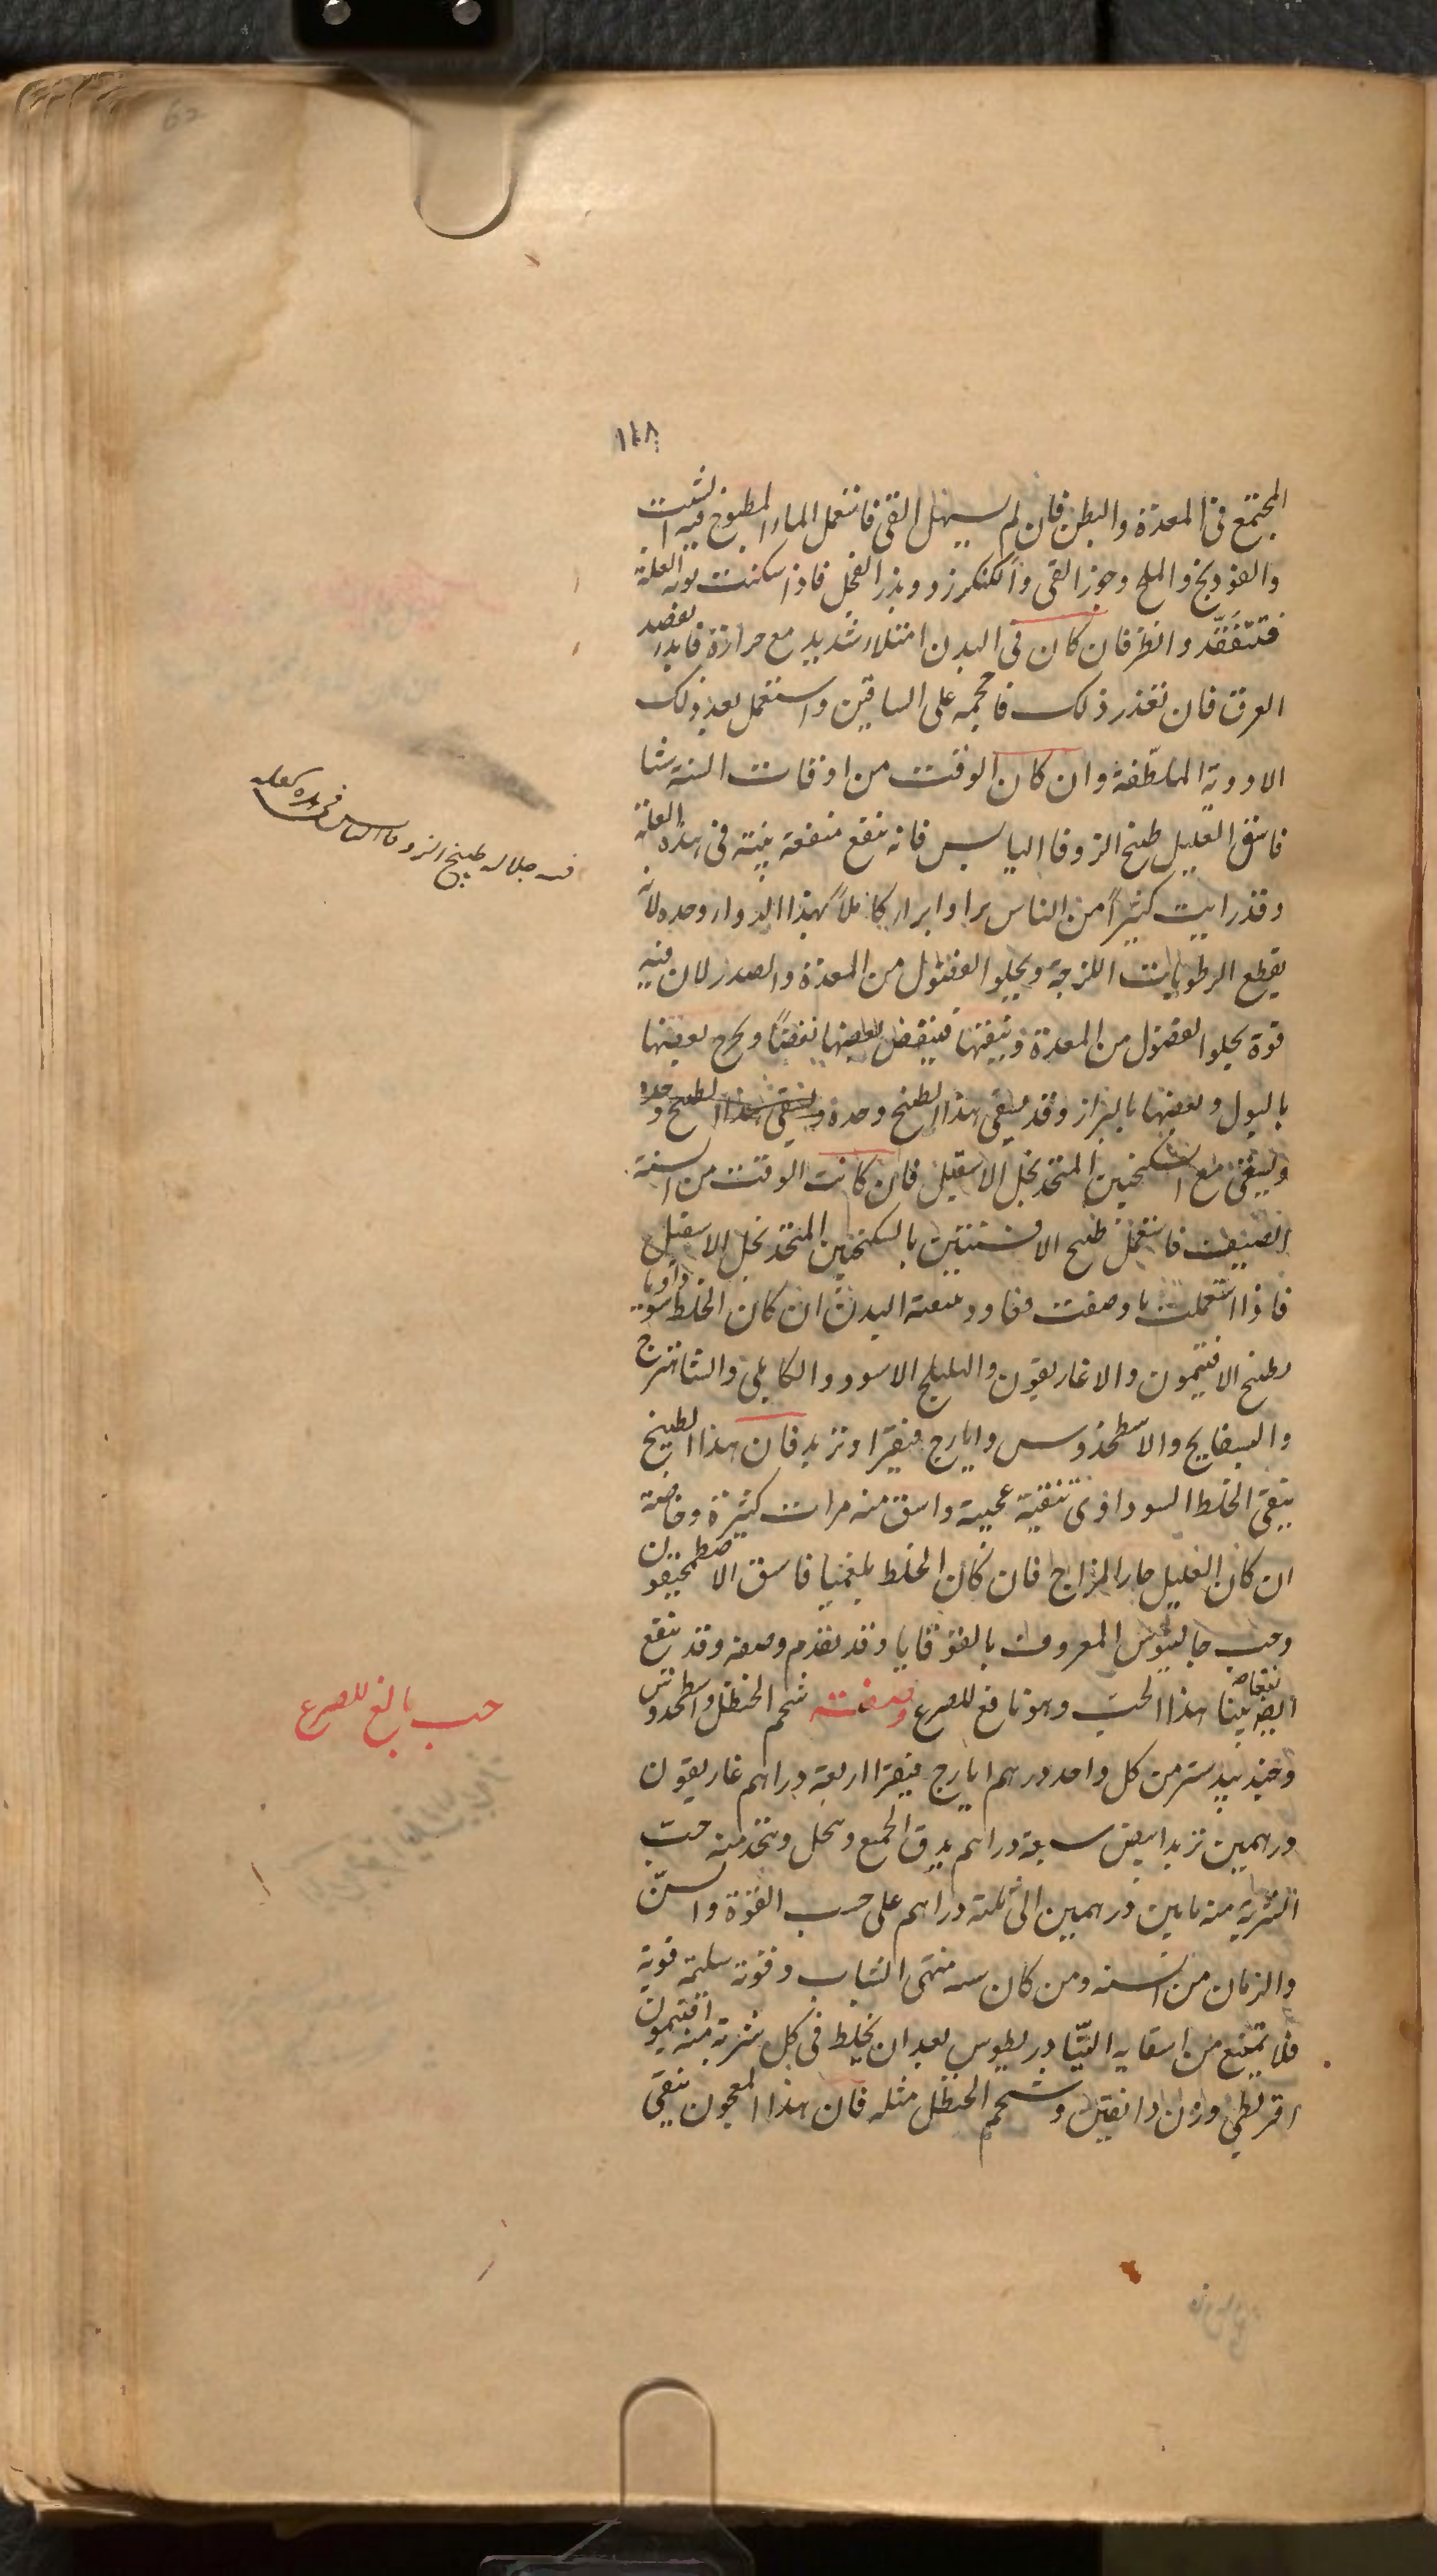 ١٤٨
المجتمع فى المعدة والبطن فان لم يسهل القى فاستعمل الماء المطبوخ فيه الشبت
والفودنج والملح وجوز القى والكنكرزد وبزر الفجل فاذا سكنت نوبه العلة
فتتفقّد وانظر فان كان فى البدن امتلاء شديد مع حرارة فابدء بفصد
العرق فان تعذر ذلك فاحجمه على الساقين واستعمل بعد ذلك
الادوية الملطّفة وان كان الوقت من اوقات السنة شتا
فاسق العليل طبيخ الزوفا اليابس فانه ينفع منفعة بينة فى هذه العلة
وقد رايت كثيراً من الناس براوا براء كاملاً بهذا الدواء وحده لانه
يقطع الرطوبات اللزجة ويجلوا الفضول من المعدة والصدر لان فيه
قوة يجلوا الفضول من المعدة وينقها فينفض بعضها نفضاً ويخرج بعضها
بالبول وبعضها بالبراز وقد يسقى هذا الطبيخ وحده ويسقى هذا الطبيخ وحده
ويسقى مع السكنجبين المتخذ بخل الاسقيل فان كانت الوقت من السنة
الصيف فاستعمل طبيخ الافسنتين بالسكنجبين المتخذ بخل الاسقيل
فاذا استعملت ما وصفت فعاود تنقية البدن ان كان الخلط سوداويا
بطبيخ الافتيمون والاغاريقون والهليلج الاسود والكابلى والشاهترج
والبسفايج والاسطخدوس وايارج فيقرا وتربد فان هذا الطبيخ
ينقى الخلط السوداوى تنقية عجيبة واسق منه مرات كثيرة وخاصة
ان كان العليل حار المزاج فان كان الخلط بلغميا فاسق الاصطمحيقون
وحب جالينوس المعروف بالقوقايا وقد تقدم وصفه وقد ينفع
نفعا بينا ايضا هذا الحبّ وهو نافع للصرع وصفته شحم الحنظل واسطخدوس
وجندبيدستر من كل واحد درهم ايارج فيقرا اربعة دراهم غاريقون
درهمين تربد ابيض سبعة دراهم يدق الجميع وينخل ويتخذ منه حبّ
الشربة منه مابين درهمين الى ثلثة دراهم على حسب القوّة والسنّ
والزمان من السنه ومن كان سنه منتهى الشباب وقوته سليمة قوية
فلا تمتنع من اسقايه التيّادريطوس بعد ان يخلط فى كل شربة منه افتيمون
اقريطى وزن دانقين وشحم الحنظل مثله فان هذا المعجون ينقى
طبيخ الزوفا اليابس
حب بالغ للصرع
62